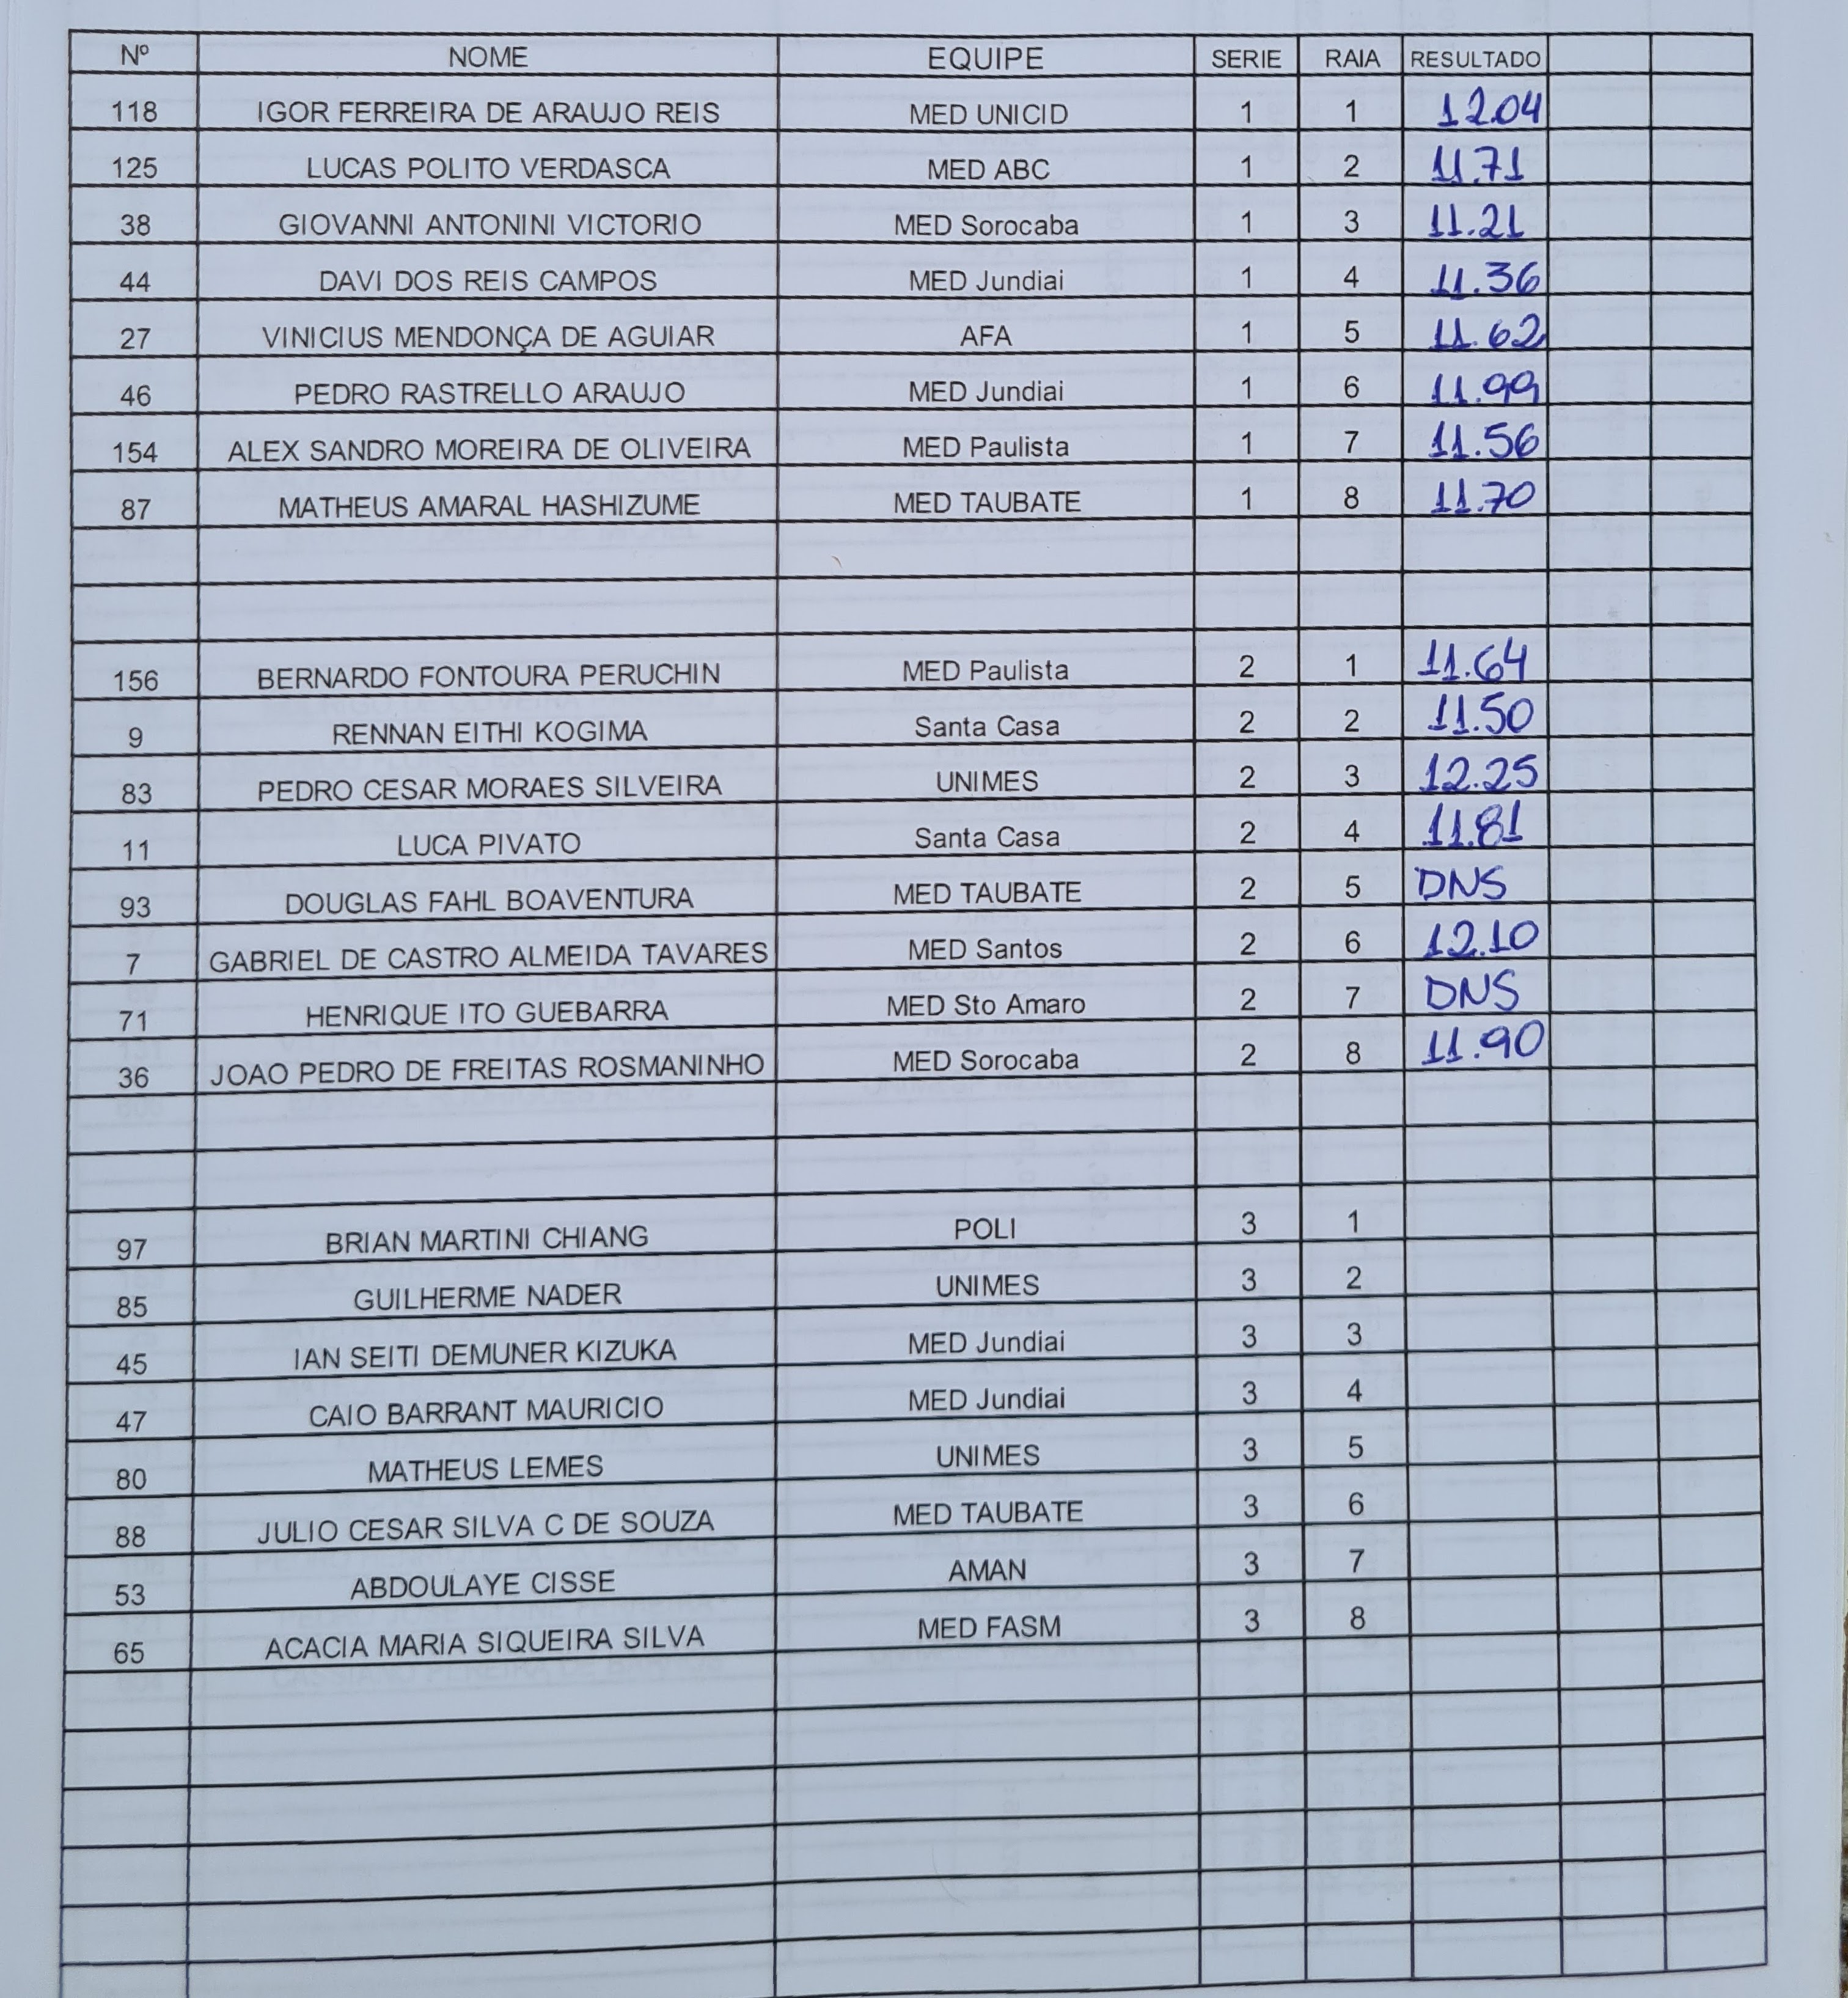 Nº NOME EQUIPE SERIE RAIA RESULTADO
118 IGOR FERREIRA DE ARAUJO REIS MED UNICID 1 1 12.04
125 LUCAS POLITO VERDASCA MED ABC 1 2 11.71
38 GIOVANNI ANTONINI VICTORIO MED Sorocaba 1 3 11.21
44 DAVI DOS REIS CAMPOS MED Jundiai 1 4 11.36
27 VINICIUS MENDONÇA DE AGUIAR AFA 1 5 11.62
46 PEDRO RASTRELLO ARAUJO MED Jundiai 1 6 11.99
154 ALEX SANDRO MOREIRA DE OLIVEIRA MED Paulista 1 7 11.56
87 MATHEUS AMARAL HASHIZUME MED TAUBATE 1 8 11.70
156 BERNARDO FONTOURA PERUCHIN MED Paulista 2 1 11.64
9 RENNAN EITHI KOGIMA Santa Casa 2 2 11.50
83 PEDRO CESAR MORAES SILVEIRA UNIMES 2 3 12.25
11 LUCA PIVATO Santa Casa 2 4 11.81
93 DOUGLAS FAHL BOAVENTURA MED TAUBATE 2 5 DNS
7 GABRIEL DE CASTRO ALMEIDA TAVARES MED Santos 2 6 12.10
71 HENRIQUE ITO GUEBARRA MED Sto Amaro 2 7 DNS
36 JOAO PEDRO DE FREITAS ROSMANINHO MED Sorocaba 2 8 11.90
97 BRIAN MARTINI CHIANG POLI 3 1
85 GUILHERME NADER UNIMES 3 2
45 IAN SEITI DEMUNER KIZUKA MED Jundiai 3 3
47 CAIO BARRANT MAURICIO MED Jundiai 3 4
80 MATHEUS LEMES UNIMES 3 5
88 JULIO CESAR SILVA C DE SOUZA MED TAUBATE 3 6
53 ABDOULAYE CISSE AMAN 3 7
65 ACACIA MARIA SIQUEIRA SILVA MED FASM 3 8